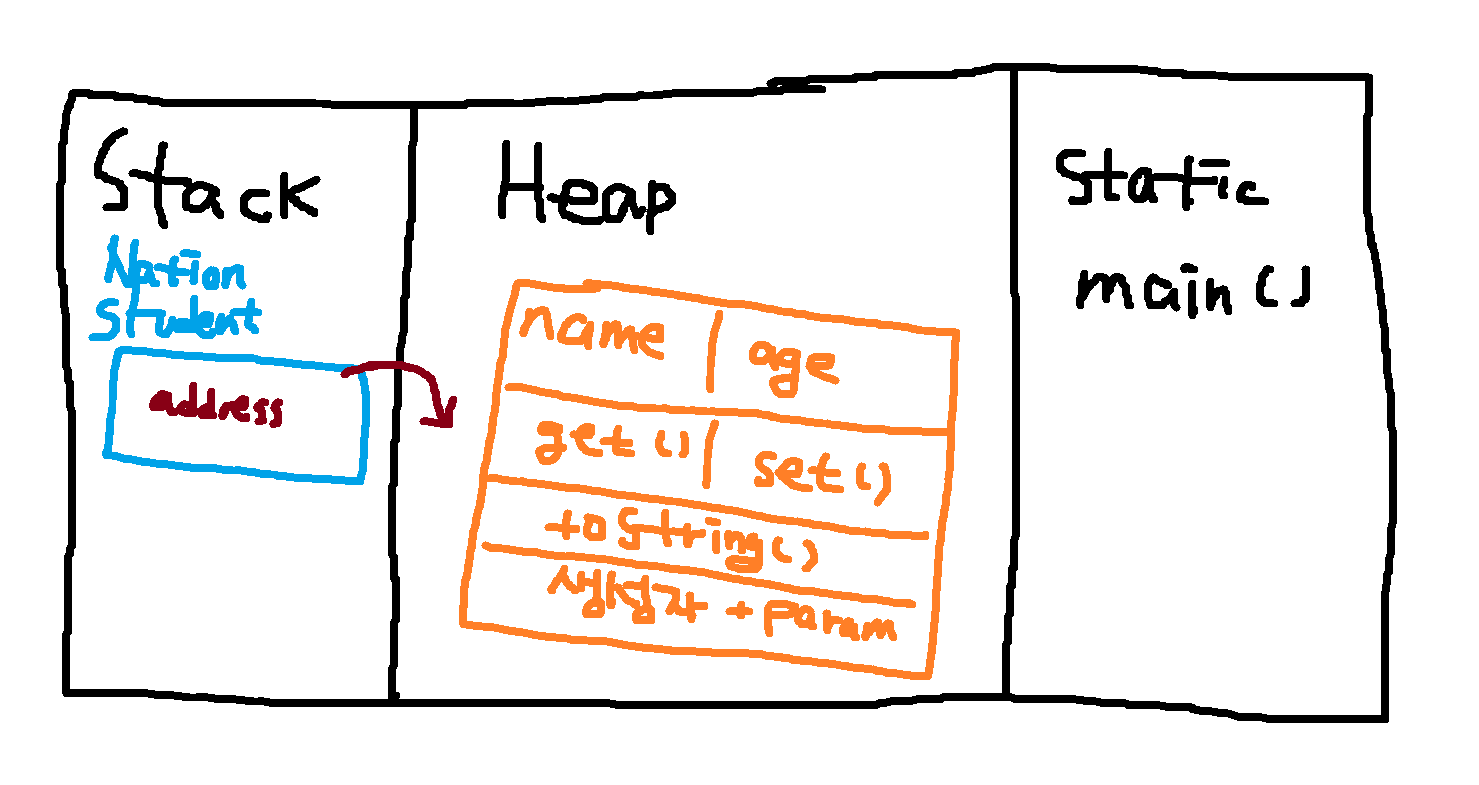 Stack
Nation
Student
address
Heap
name age
get() set()
toString()
생성자 + param
Static
main()